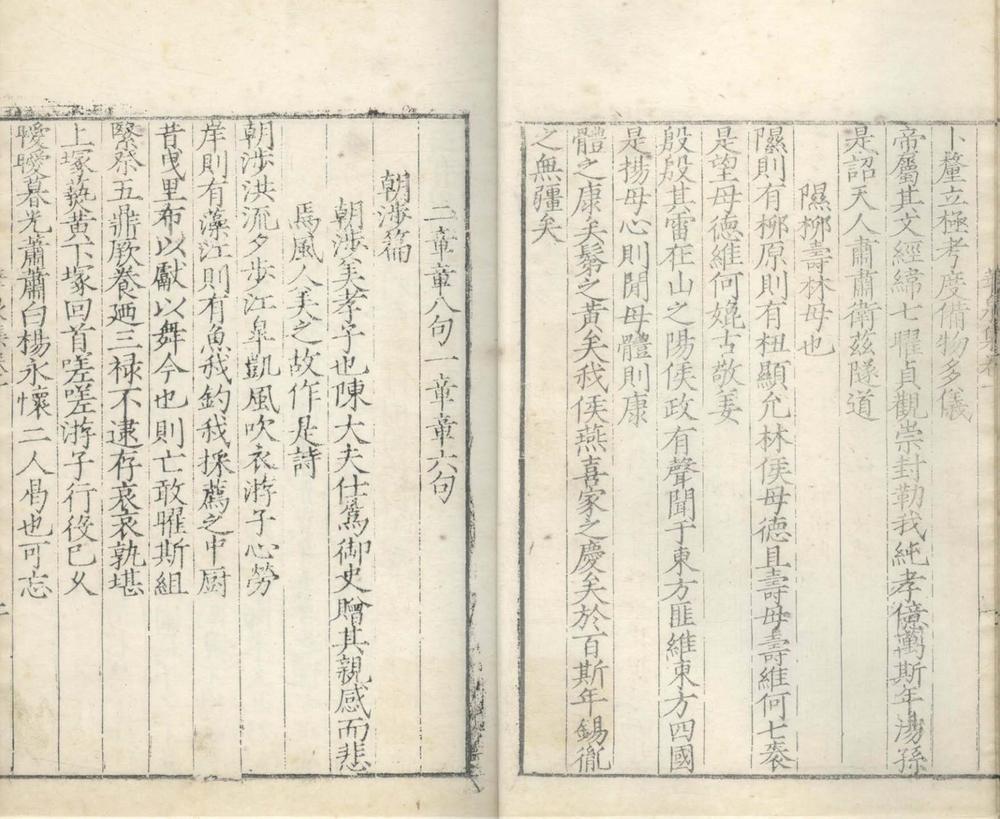 卜釐立極考度備物多儀
帝屬其文經緯七曜貞觀崇封勒我純孝億萬斯年湯孫
是詔天人肅肅衛玆隧道
隰柳壽林母也
隰則有柳原則有杻顯允林侯母德且壽母壽維何七袠
是望母德維何媲古敬姜
殷殷其雷在山之陽侯政有聲聞于東方匪維東方四國
是揚母心則閒母體則康
體之康矣鬒之黃矣我侯燕喜家之慶矣於百斯年錫胤
之無彊矣
二章章八句一章章六句
朝涉篇
朝涉美孝子也陳大夫仕爲御史贈其親感而悲
焉風人美之故作是詩
朝涉洪流夕步江皐凱風吹衣游子心勞
岸則有藻江則有魚我釣我採薦之中厨
昔曵里布以獻以舞今也則亡敢曜斯組
緊祭五鼎厥養廼三祿不逮存哀哀孰堪
上塚爇黃下塚回首嗟嗟游子行役已久
曖曖暮光蕭蕭白楊永懷二人曷也可忘